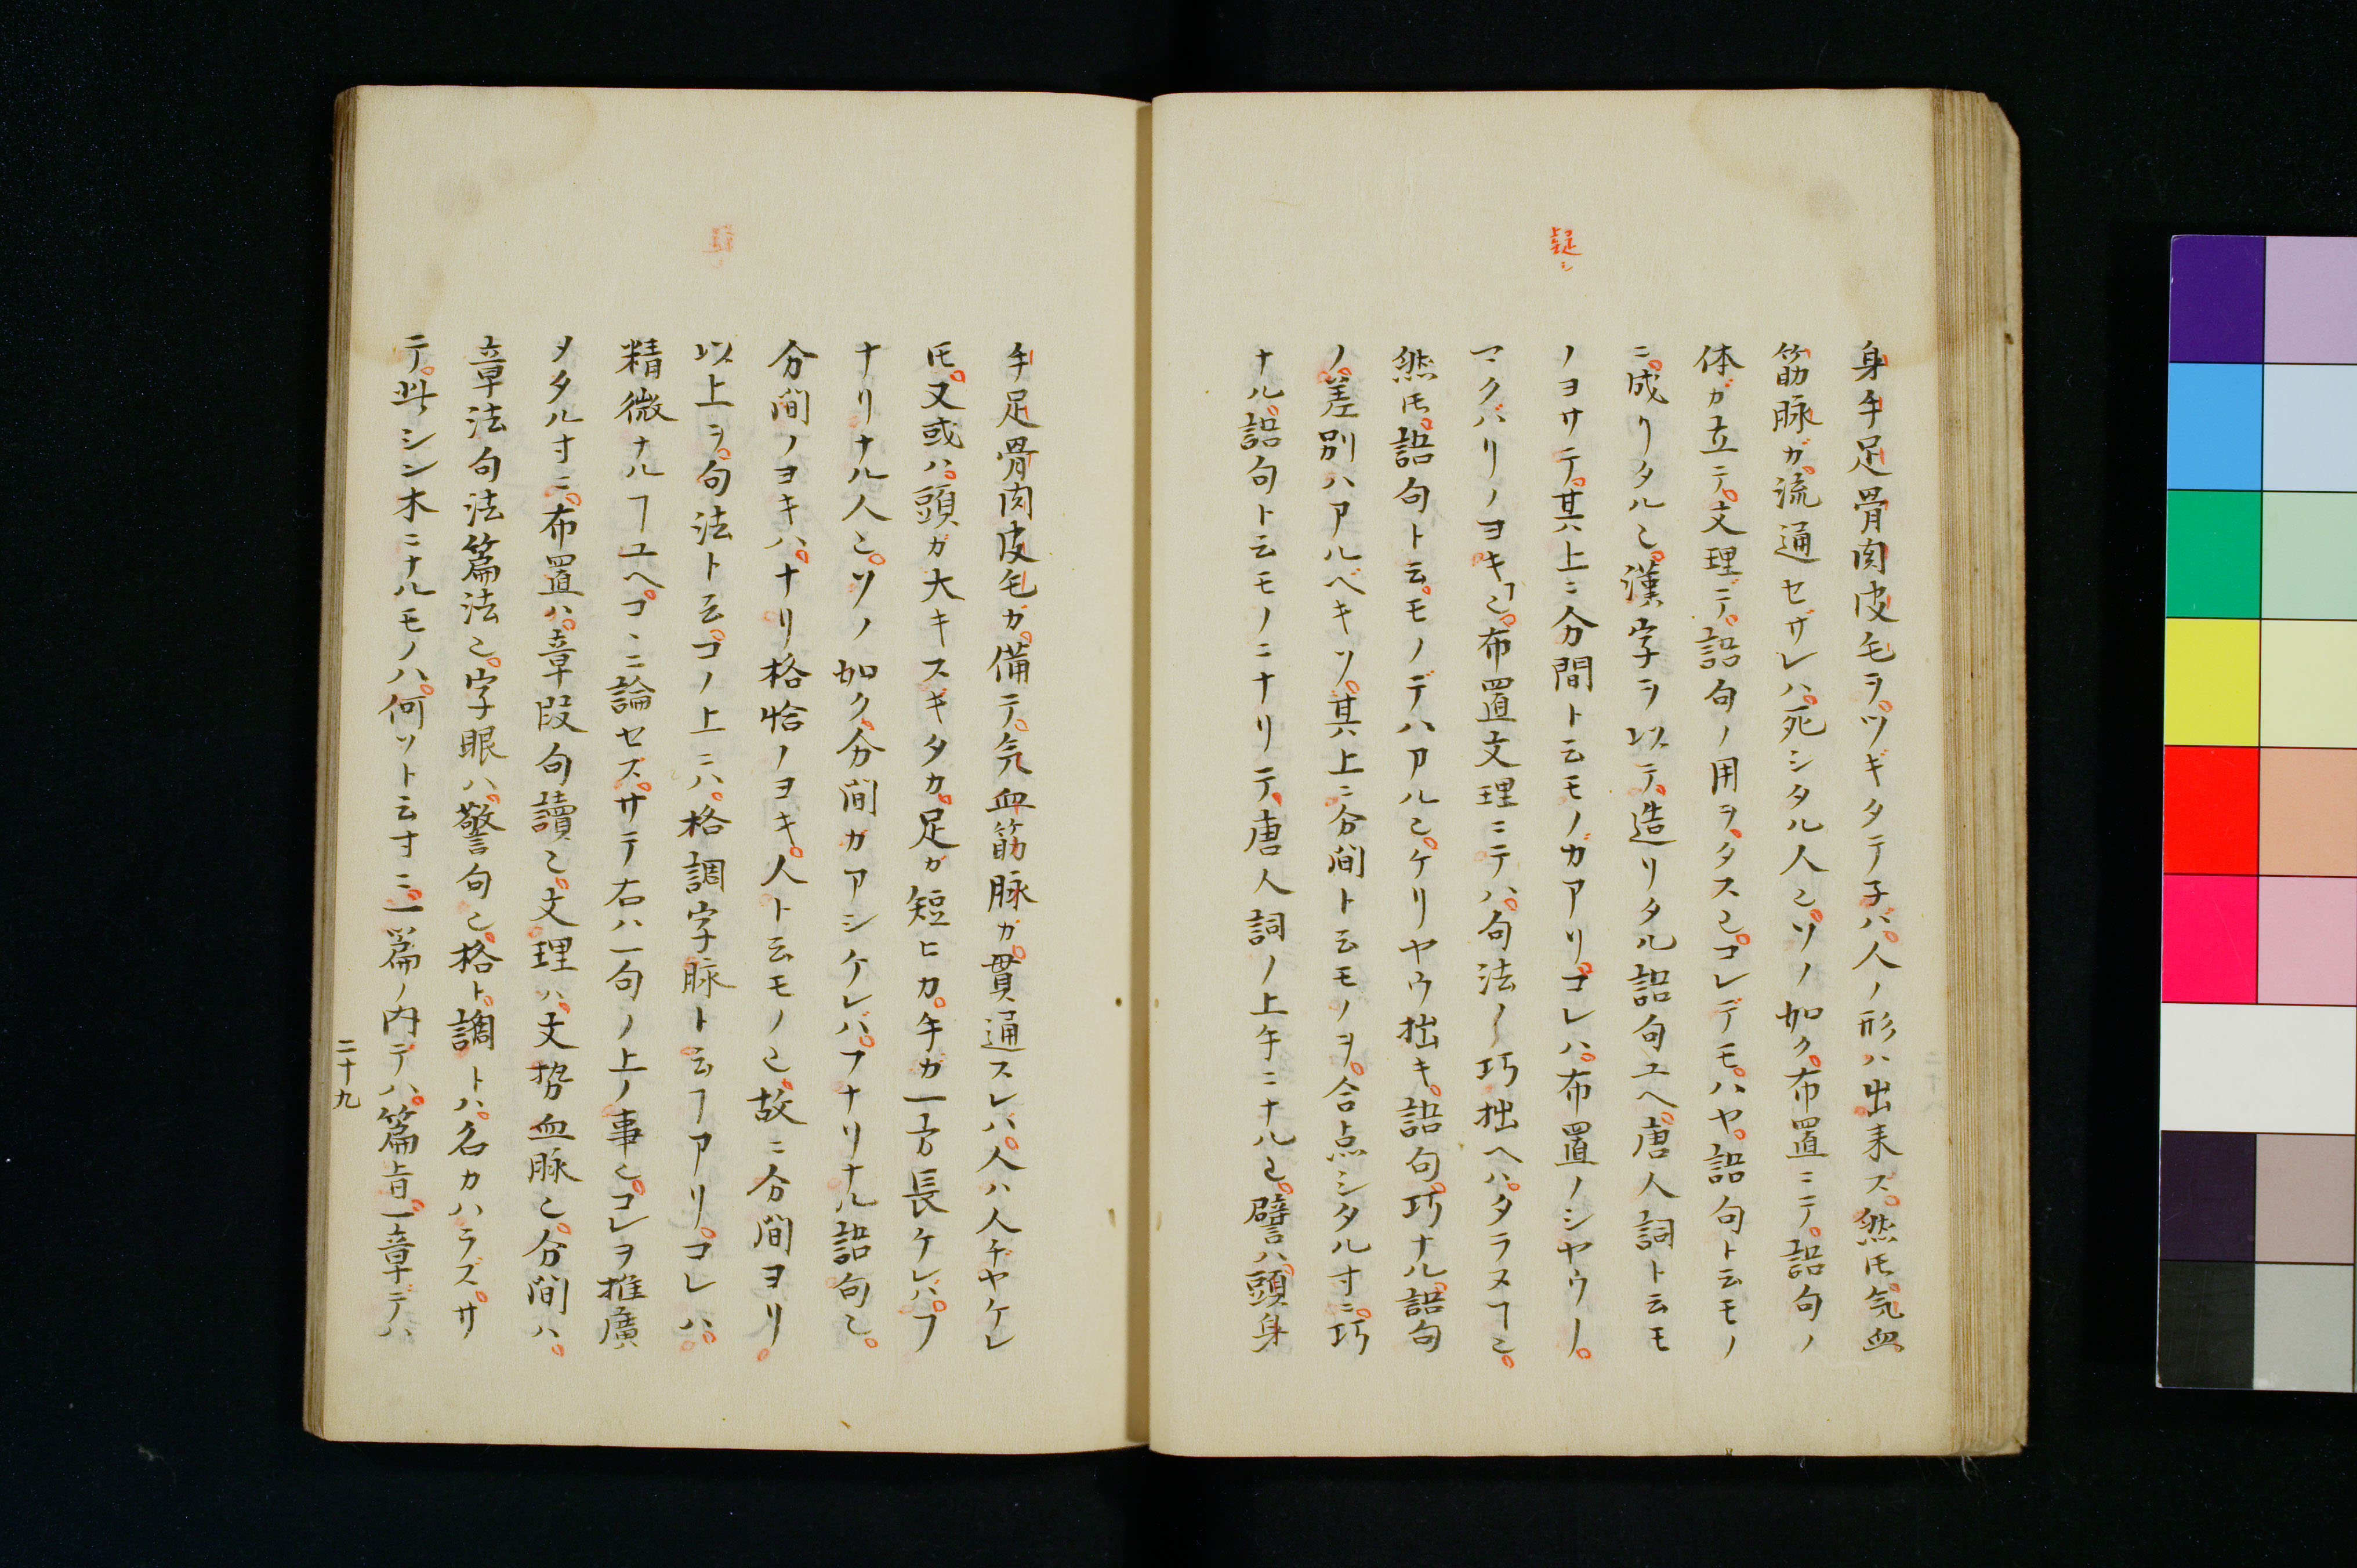 身手足骨肉皮毛ヲ。ツギタテ子バ。人ノ形ハ出来ズ。然𪜈。気血
筋脉ガ。流通セザレハ。死シタル人也。ソノ如ク。布置ニテ。語句ノ
体ガ立テ。文理デ。語句ノ用ヲ。タス也。コレデモ。ハヤ。語句ト云モノ
ニ。成リタル也。漢字ヲ以テ。造リタル語句ユヘ。唐人詞ト云モ
ノヨサテ。其上ニ分間ト云モノガアリ。コレハ。布置ノシヤウノ。
マクバリノヨキヿ也。布置文理ニテハ。句法ノ巧拙ヘハ。タラヌヿ也。
然𪜈。語句ト云。モノデハアル也。ケリヤウ拙キ。語句。巧ナル。語句
ノ。差別ハアルベキソ。其上ニ分間ト云モノヲ。合点シタル寸ニ。巧
ナル。語句ト云モノニナリテ。唐人詞ノ上手ニナル也。譬ハ。頭身
手足骨肉皮毛ガ。備テ。気血筋脉ガ。貫通スレバ。人ハ人ヂヤケレ
𪜈。又或ハ。頭ガ大キスギタカ。足ガ短ヒカ。手ガ一方長ケレバ。フ
ナリナル人也。ソノ如ク。分間ガアシケレバ。フナリナル語句也。
分間ノヨキハ。ナリ格恰ノヨキ。人ト云モノ也。故ニ分間ヨリ。
以上ヲ。句法ト云。コノ上ニハ。格調字脉ト云ヿアリ。コレハ。
精微ナルヿユヘ。コヽニ論セズ。サテ右ハ一句ノ上ノ事也。コレヲ推廣
メタル寸ニ。布置ハ。章段句讀也。文理ハ。文勢血脉也。分間ハ。
章法句法篇法也。字眼ハ。警句也。格ト。調トハ。名カハラズ。サ
テ。此シン木ニナルモノハ。何ソト云寸ニ。一篇ノ内デハ。篇旨。一章デハ
二十九